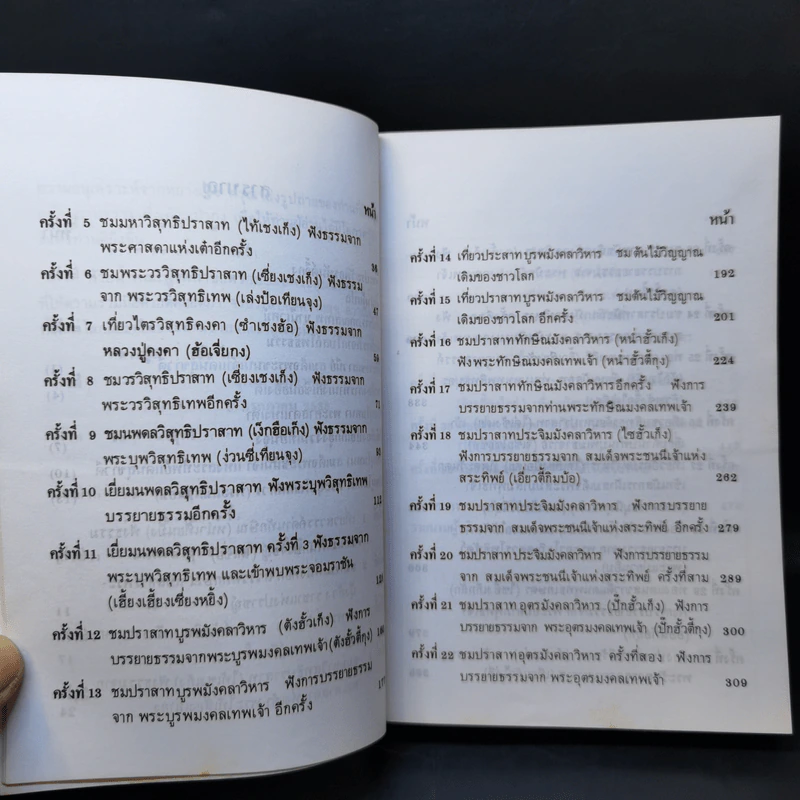 หน้า
ครั้งที่ 5 ชมมหาวิสุทธิปราสาท (ไท้เชงเก็ง) ฟังธรรมจาก
พระศาสดาแห่งเต๋าอีกครั้ง
ครั้งที่ 6 ชมพระวรวิสุทธิปราสาท (เซี่ยงเชงเก็ง) ฟังธรรม
จาก พระวรวิสุทธิเทพ (เล่งป้อเทียนจุง) 47
ครั้งที่ 7 เที่ยวไตรวิสุทธิคงคา (ซำเชงฮ้อ) ฟังธรรมจาก
หลวงปู่คงคา (ฮ้อเจี่ยกง)
ครั้งที่ 8 ชมวรวิสุทธิปราสาท (เซี่ยงเชงเก็ง) ฟังธรรมจาก
พระวรวิสุทธิเทพอีกครั้ง 71
ครั้งที่ 9 ชมนพดลวิสุทธิปราสาท (เง็กฮือเก็ง) ฟังธรรมจาก
พระบุพวิสุทธิเทพ (ง่วนซี่เทียนจุง)
ครั้งที่ 10 เยี่ยมนพดลวิสุทธิปราสาท ฟังพระบุพวิสุทธิเทพ
บรรยายธรรมอีกครั้ง
ครั้งที่ 11 เยี่ยมนพดลวิสุทธิปราสาท ครั้งที่ 3 ฟังธรรมจาก
พระบุพวิสุทธิเทพ และเข้าพบพระจอมราชัน
(เฮี้ยงเฮี้ยงเซี่ยงหยิ้ง)
ครั้งที่ 12 ชมปราสาทบูรพมังคลาวิหาร (ตังฮั้วเก็ง) ฟังการ
บรรยายธรรมจากพระบูรพมงคลเทพเจ้า(ตังฮั้วตี้กุง)
ครั้งที่ 13 ชมปราสาทบูรพมังคลาวิหาร ฟังการบรรยายธรรม
จาก พระบูรพมงคลเทพเจ้า อีกครั้ง
หน้า
ครั้งที่ 14 เที่ยวประสาทบูรพมังคลาวิหาร ชมต้นไม้วิญญาณ
เดิมของชาวโลก 192
ครั้งที่ 15 เที่ยวปราสาทบูรพมังคลาวิหาร ชมต้นไม้วิญญาณ
เดิมของชาวโลก อีกครั้ง 201
ครั้งที่ 16 ชมปราสาททักษิณมังคลาวิหาร (หน่ำฮั้วเก็ง)
ฟังพระทักษิณมงคลเทพเจ้า (หน่ำฮั้วตี้กุง) 224
ครั้งที่ 17 ชมปราสาททักษิณมังคลาวิหารอีกครั้ง ฟังการ
บรรยายธรรมจากท่านพระทักษิณมงคลเทพเจ้า 239
ครั้งที่ 18 ชมปราสาทประจิมมังคลาวิหาร (ไซฮั้วเก็ง)
ฟังการบรรยายธรรมจาก สมเด็จพระชนนีเจ้าแห่ง
สระทิพย์ (เอี่ยวตี้กิมบ้อ) 262
ครั้งที่ 19 ชมปราสาทประจิมมังคลาวิหาร ฟังการบรรยาย
ธรรมจาก สมเด็จพระชนนีเจ้าแห่งสระทิพย์ อีกครั้ง 279
ครั้งที่ 20 ชมปราสาทประจิมมังคลาวิหาร ฟังการบรรยายธรรม
จาก สมเด็จพระชนนีเจ้าแห่งสระทิพย์ ครั้งที่สาม 289
ครั้งที่ 21 ชมปราสาทอุตรมังคลาวิหาร (ปักฮั้วเก็ง) ฟังการ
บรรยายธรรมจาก พระอุตรมงคลเทพเจ้า (ปักฮั้วตี้กุง) 300
ครั้งที่ 22 ชมปราสาทอุตรมังคลาวิหาร ครั้งที่สอง ฟังการ
บรรยายธรรมจาก พระอุตรมงคลเทพเจ้า 309